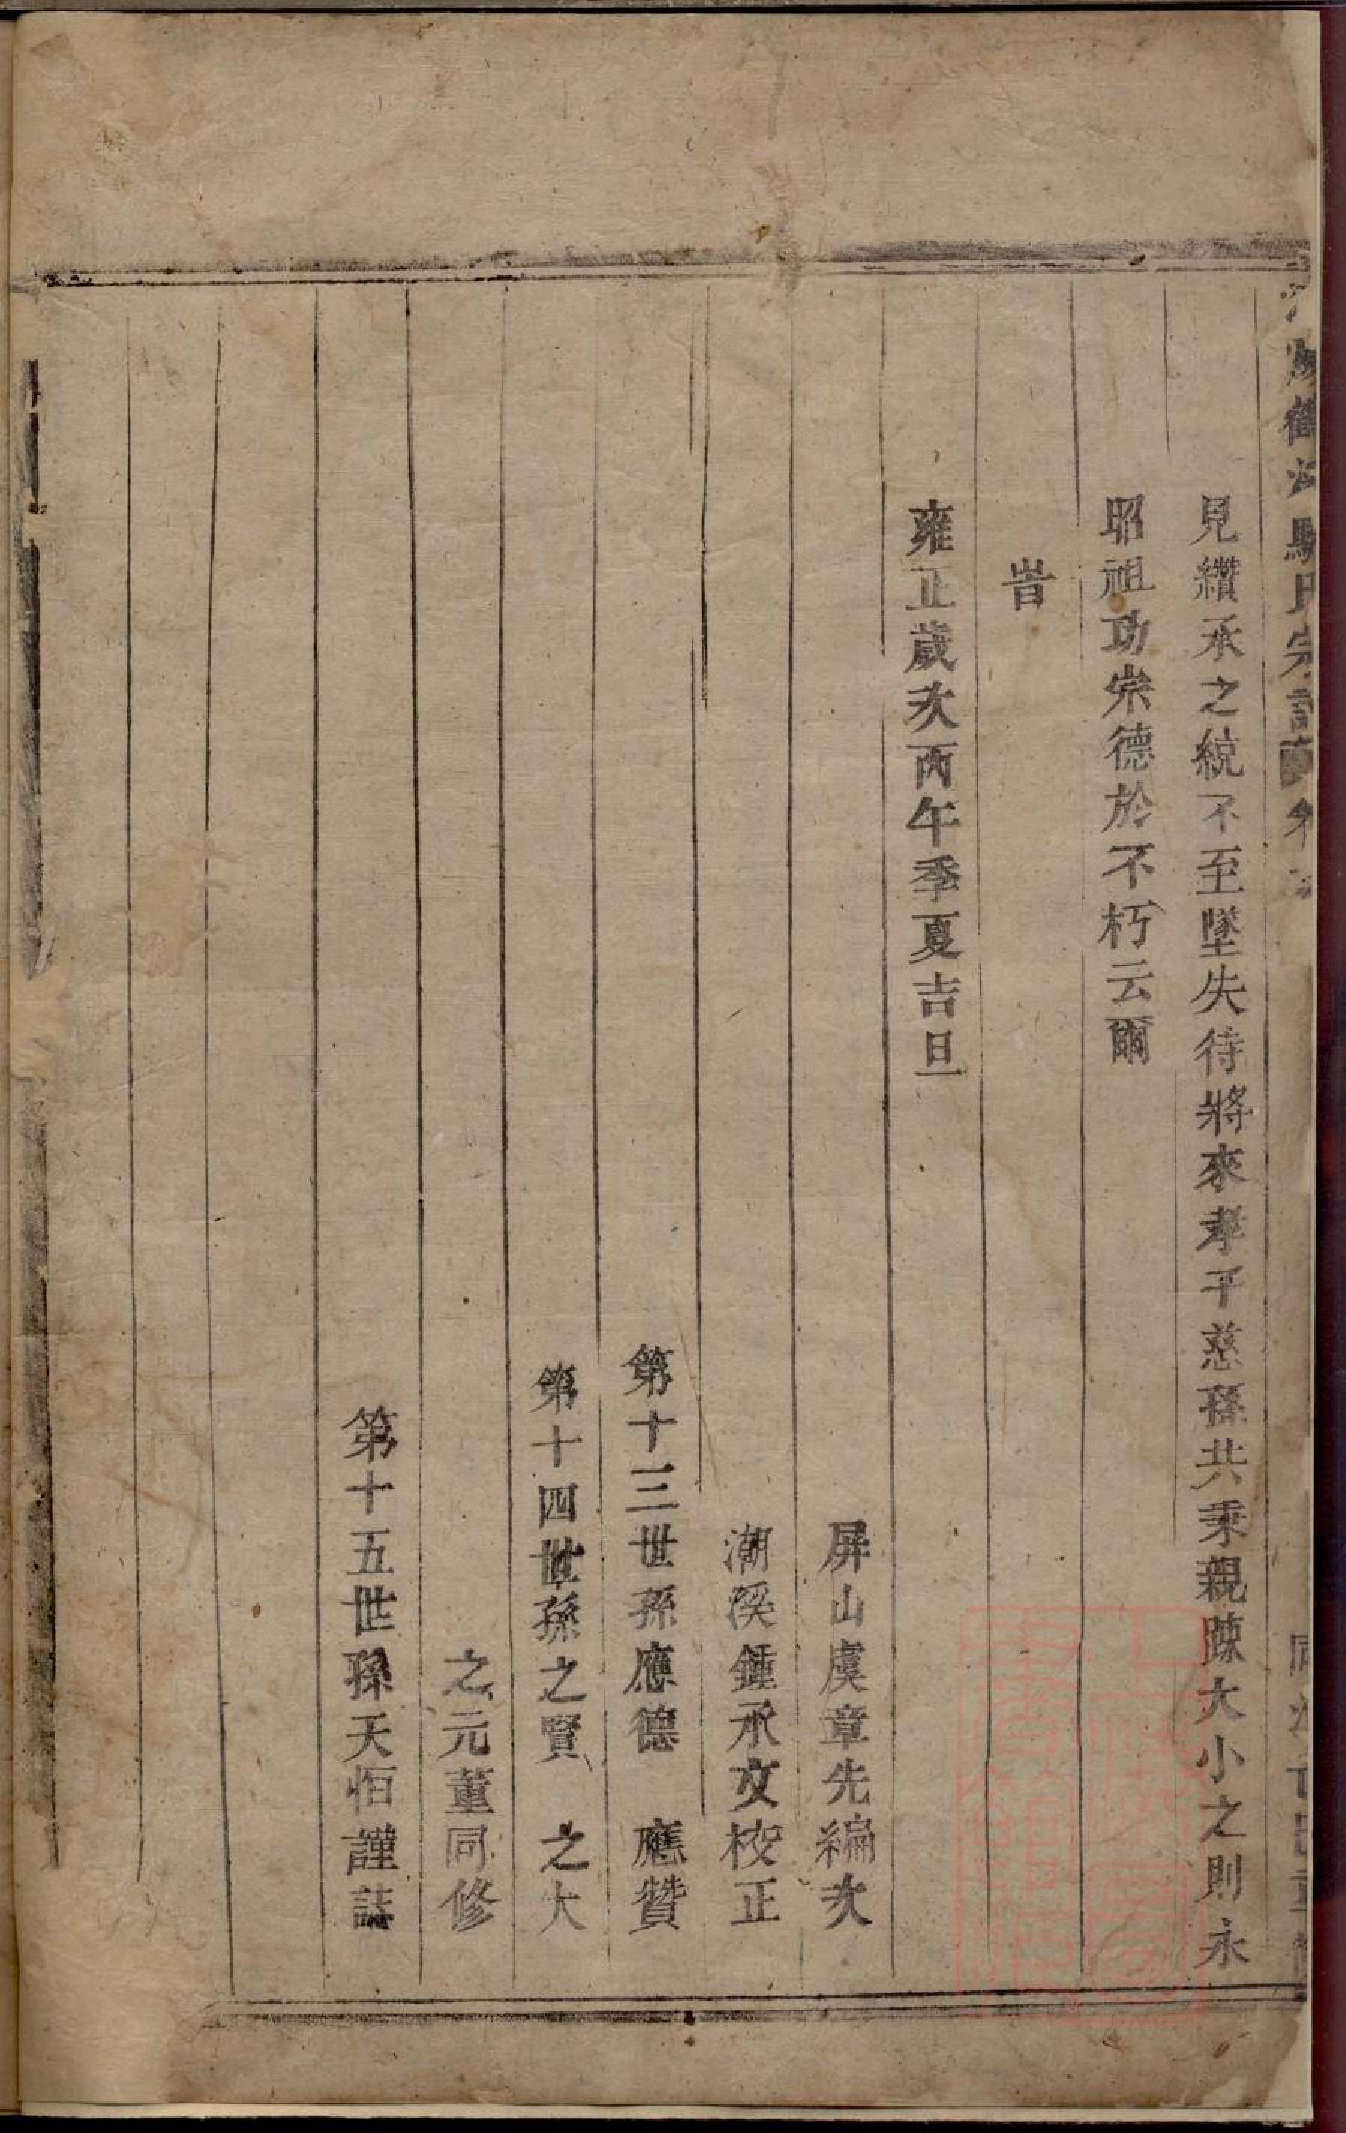 見纘承之統不至墜失待將來孝子慈孫共秉親疎大小之則永
昭祖功宗德於不朽云爾
旹
雍正歲次丙午季夏吉旦
屏山虞章先編次
潮溪鍾承文校正
第十三世孫應德　應贊
第十四世孫之賢　之大
之元董同修
第十五世孫天恒謹誌